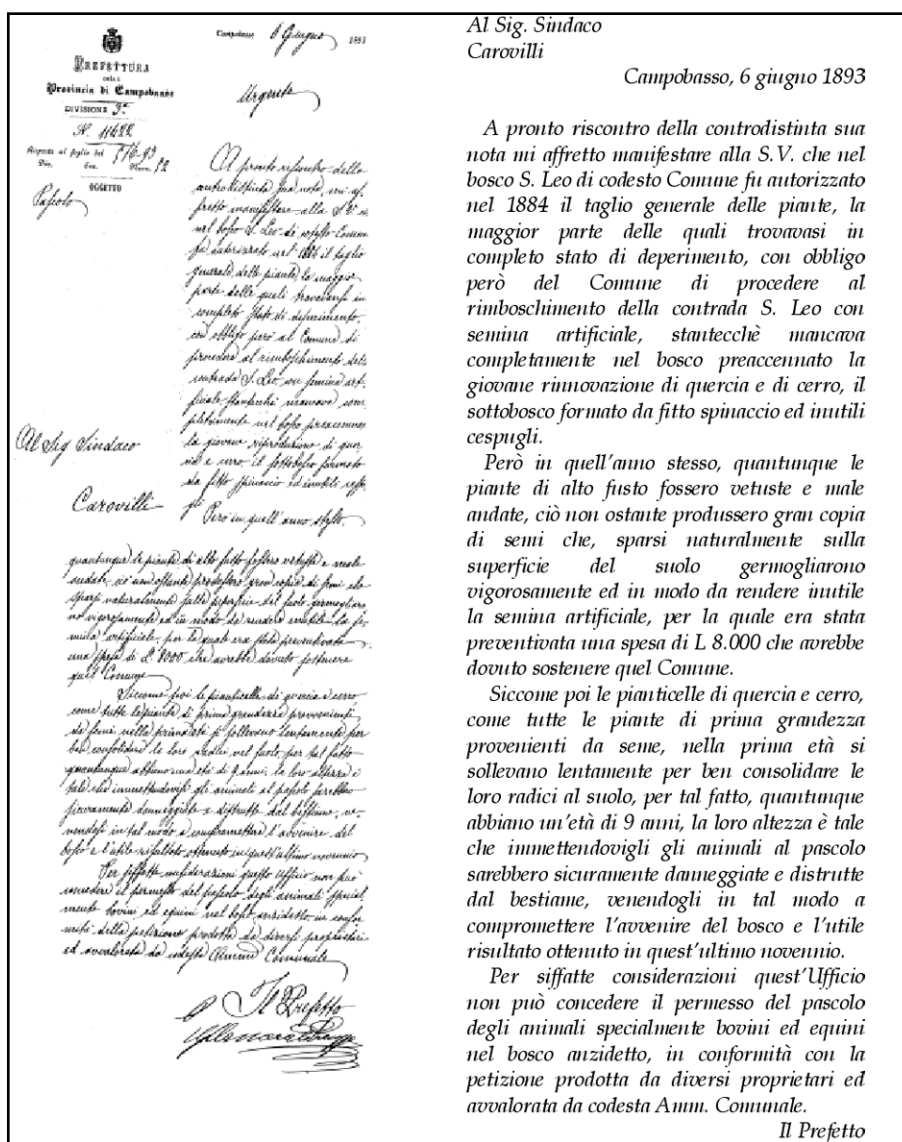 PREFETTURA
DELLA
Provincia di Campobasso
DIVISIONE 3ª
N. 11422
Risposta al foglio del
OGGETTO
Pascolo
Campobasso 6 Giugno 1893
Urgente
A pronto riscontro della
controdistinta sua nota mi af
fretto manifestare alla S.V. che
nel bosco S. Leo di codesto Comune
fu autorizzato nel 1884 il taglio
generale delle piante, la maggior
parte delle quali trovavasi in
completo stato di deperimento,
con obbligo però al Comune di
procedere al rimboschimento della
contrada S. Leo, con semina arti
ficiale stantecchè mancava com
pletamente nel bosco preaccennato
la giovane riproduzione di quer
cia e cerro, il sottobosco formato
da fitto spinaccio ed inutili cespu
gli
Però in quell'anno stesso,
Al Sig Sindaco
Carovilli
quantunque le piante di alto fusto fossero vetuste e male
andate, ciò non ostante produssero gran copia di semi che
sparsi naturalmente sulla superficie del suolo germogliaro
no vigorosamente ed in modo da rendere inutile la se
mina artificiale, per la quale era stata preventivata
una spesa di L. 8000 che avrebbe dovuto sostenere
quel Comune
Siccome poi le pianticelle di quercia e cerro
come tutte le piante di prima grandezza provenienti
da semi nella prima età si sollevano lentamente per
ben consolidare le loro radici nel suolo, per tal fatto
quantunque abbiano una età di 9 anni, la loro altezza è
tale che immettendovisi gli animali al pascolo sarebbero
sicuramente danneggiate e distrutte dal bestiame, ve
nendosi in tal modo a compromettere l'avvenire del
bosco e l'utile risultato ottenuto in quest'ultimo novennio
Per siffatte considerazioni questo Ufficio non può
concedere il permesso del pascolo degli animali special
mente bovini ed equini nel bosco anzidetto in confor
mità della petizione prodotta da diversi proprietari
ed avvalorata da codesta Amm. Comunale
Il Prefetto
Al Sig. Sindaco
Carovilli
Campobasso, 6 giugno 1893
A pronto riscontro della controdistinta sua
nota mi affretto manifestare alla S.V. che nel
bosco S. Leo di codesto Comune fu autorizzato
nel 1884 il taglio generale delle piante, la
maggior parte delle quali trovavasi in
completo stato di deperimento, con obbligo
però del Comune di procedere al
rimboschimento della contrada S. Leo con
semina artificiale, stantecchè mancava
completamente nel bosco preaccennato la
giovane rinnovazione di quercia e di cerro, il
sottobosco formato da fitto spinaccio ed inutili
cespugli.
Però in quell'anno stesso, quantunque le
piante di alto fusto fossero vetuste e male
andate, ciò non ostante produssero gran copia
di semi che, sparsi naturalmente sulla
superficie del suolo germogliarono
vigorosamente ed in modo da rendere inutile
la semina artificiale, per la quale era stata
preventivata una spesa di L 8.000 che avrebbe
dovuto sostenere quel Comune.
Siccome poi le pianticelle di quercia e cerro,
come tutte le piante di prima grandezza
provenienti da seme, nella prima età si
sollevano lentamente per ben consolidare le
loro radici al suolo, per tal fatto, quantunque
abbiano un'età di 9 anni, la loro altezza è tale
che immettendovigli gli animali al pascolo
sarebbero sicuramente danneggiate e distrutte
dal bestiame, venendogli in tal modo a
compromettere l'avvenire del bosco e l'utile
risultato ottenuto in quest'ultimo novennio.
Per siffatte considerazioni quest'Ufficio
non può concedere il permesso del pascolo
degli animali specialmente bovini ed equini
nel bosco anzidetto, in conformità con la
petizione prodotta da diversi proprietari ed
avvalorata da codesta Amm. Comunale.
Il Prefetto